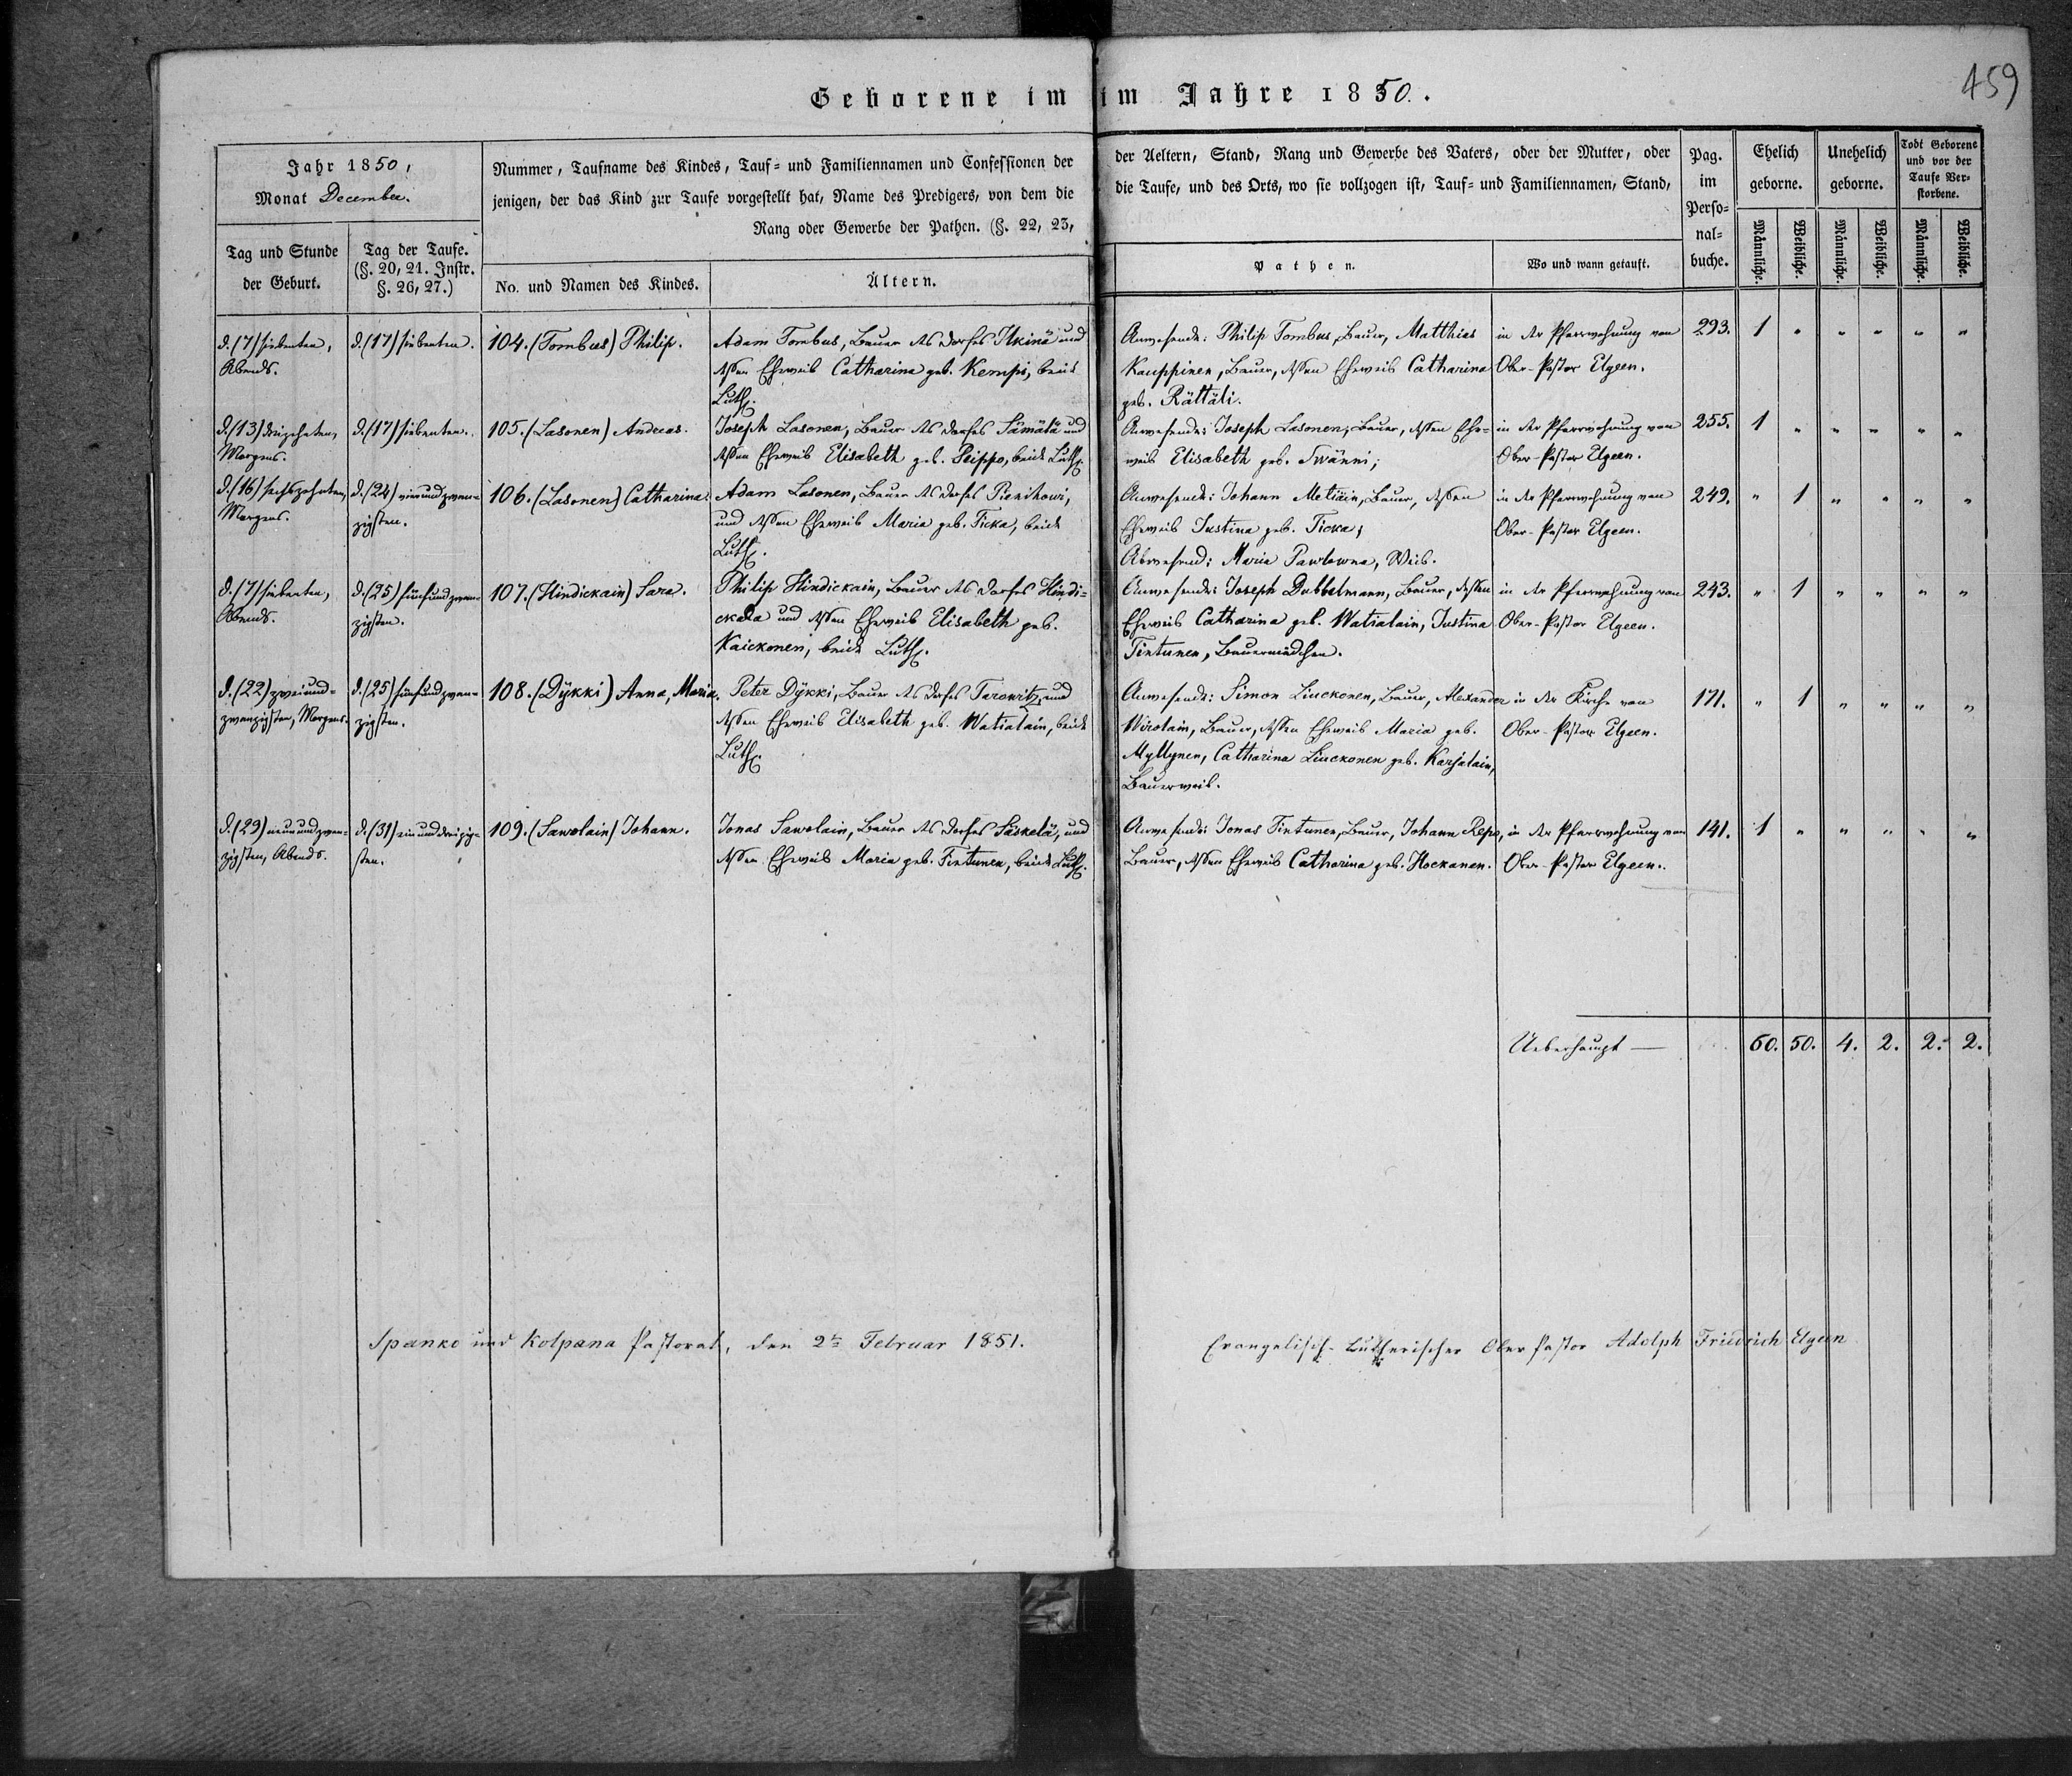 459
Geborene im im Jahre 1850.
Jahr 1850,
Monat December.
Nummer, Taufname des Kindes, Tauf- und Familiennamen und Confessionen der
jenigen, der das Kind zur Taufe vorgestellt hat, Name des Predigers, von dem die
Rang oder Gewerbe der Pathen. (§. 22, 23,
der Aeltern, Stand, Rang und Gewerbe des Vaters, oder der Mutter, oder
die Taufe, und des Orts, wo sie vollzogen ist, Tauf- und Familiennamen, Stand,
Pag.
im
Perso-
nal-
buche.
Ehelich
geborne.
Unehelich
geborne.
Todt Geborene
und vor der
Taufe Ver-
storbene.
Männliche. Weibliche. Männliche. Weibliche. Männliche. Weibliche.
Tag und Stunde
der Geburt.
Tag der Taufe.
(§. 20, 21. Instr.
§. 26, 27.)
No. und Namen des Kindes.
Ältern.
Pathen.
Wo und wann getauft.
d. (7) siebenten,
Abends.
d. (17) siebenten.
104. (Tombus) Philip.
Adam Tombus, Bauer des Dorfes Ilkinä und
dessen Eheweib Catharina geb. Kempi, beide
Luth.
Anwesende: Philip Tombus, Bauer, Matthias
Kauppinen, Bauer, dessen Eheweib Catharina
geb. Rättäli.
in der Pfarrwohnung von
Ober-Pastor Elgeen.
293. 1 " " " " "
d. (13) dreizehnten,
Morgens.
d. (17) siebenten.
105. (Lasonen) Andreas.
Joseph Lasonen, Bauer des Dorfes Sämälä und
dessen Eheweib Elisabeth geb. Seippo, beide Luth.
Anwesende: Joseph Lasonen, Bauer, dessen Ehe-
weib Elisabeth geb. Swänni;
in der Pfarrwohnung von
Ober-Pastor Elgeen.
255. 1 " " " " "
d. (16) sechszehnten,
Morgens.
d. (24) vierundzwan-
zigsten.
106. (Lasonen) Catharina.
Adam Lasonen, Bauer des Dorfes Pienikowi,
und dessen Eheweib Maria geb. Ticka, beide
Luth.
Anwesende: Johann Metiäin, Bauer, dessen
Eheweib Justina geb. Ticka;
Abwesend: Maria Pawlowna, Weib.
in der Pfarrwohnung von
Ober-Pastor Elgeen.
249. " 1 " " " "
d. (7) siebenten,
Abends.
d. (25) fünfundzwan-
zigsten.
107. (Hindickain) Sara.
Philip Hindickain, Bauer des Dorfes Hindi-
ckala und dessen Eheweib Elisabeth geb.
Kaickonen, beide Luth.
Anwesende: Joseph Dubbelmann, Bauer, dessen
Eheweib Catharina geb. Watialain, Justina
Tintunen, Bauermädchen.
in der Pfarrwohnung von
Ober-Pastor Elgeen.
243. " 1 " " " "
d. (22) zweiund-
zwanzigsten, Morgens.
d. (25) fünfundzwan-
zigsten.
108. (Dÿkki) Anna, Maria.
Peter Dÿkki, Bauer des Dorfes Tarowitz, und
dessen Eheweib Elisabeth geb. Watialain, beide
Luth.
Anwesende: Simon Liuckonen, Bauer, Alexander
Wirolain, Bauer, dessen Eheweib Maria geb.
Myllynen, Catharina Liuckonen geb. Karjalain,
Bauerweib.
in der Kirche von
Ober-Pastor Elgeen.
171. " 1 " " " "
d. (29) neunundzwan-
zigsten, Abends.
d. (31) einunddreizig-
sten.
109. (Sawolain) Johann.
Jonas Sawolain, Bauer des Dorfes Säskelä, und
dessen Eheweib Maria geb. Tintunen, beide Luth.
Anwesende: Jonas Tintunen, Bauer, Johann Repo,
Bauer, dessen Eheweib Catharina geb. Hockanen.
in der Pfarrwohnung von
Ober-Pastor Elgeen.
141. 1 " " " " "
Ueberhaupt — 60. 50. 4. 2. 2. 2.
Spanko und Kolpana Pastorat, den 2ten Februar 1851.
Evangelisch-Lutherischer Ober Pastor Adolph Friedrich Elgeen